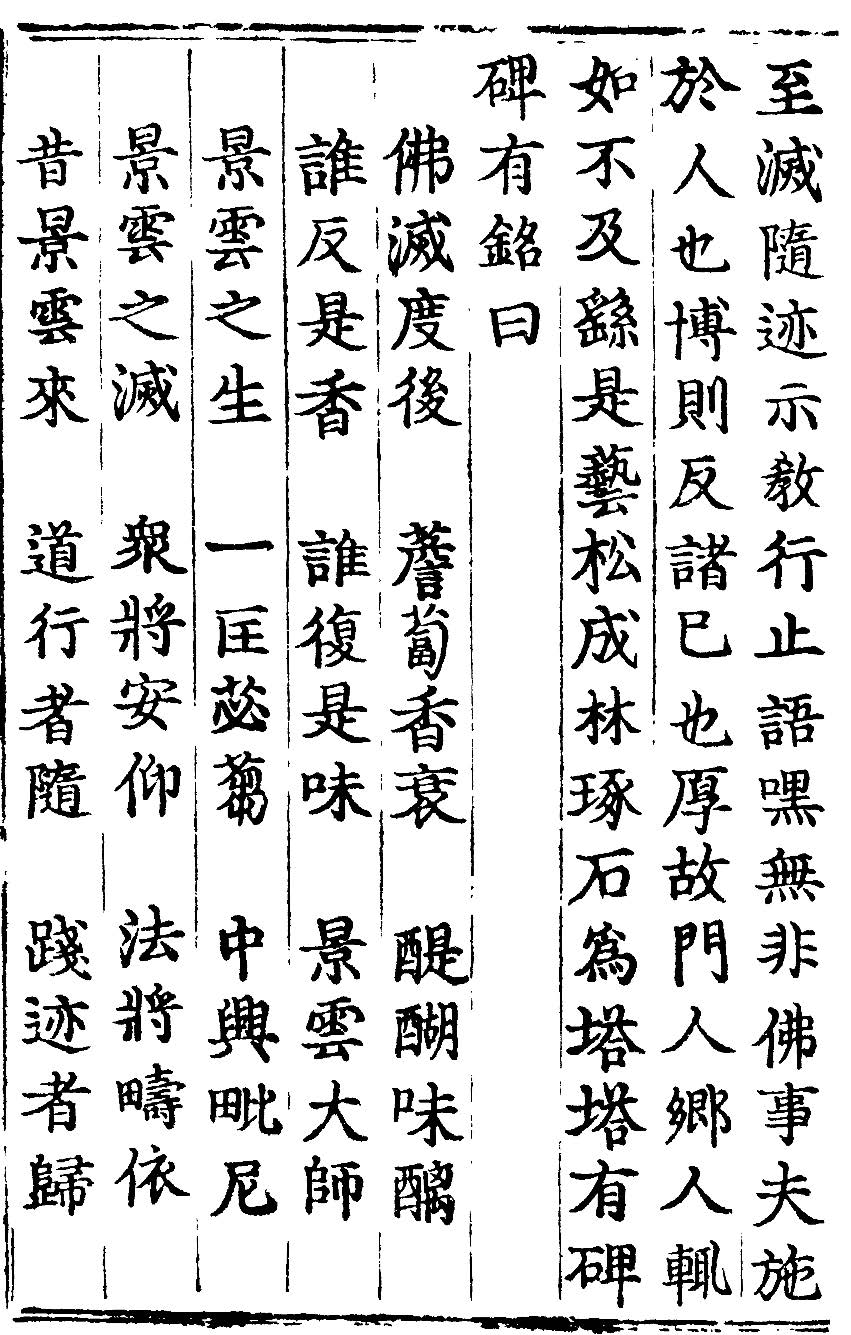 至滅隨迹示教行止語嘿無非佛事夫施
於人也博則反諸已也厚故門人鄉人輒
如不及繇是藝松成林琢石爲塔塔有碑
碑有銘曰
佛滅度後　薝蔔香衰　醍醐味醨
誰反是香　誰復是味　景雲大師
景雲之生　一匡苾蒭　中興毗尼
景雲之滅　衆將安仰　法將疇依
昔景雲來　道行者隨　踐迹者歸